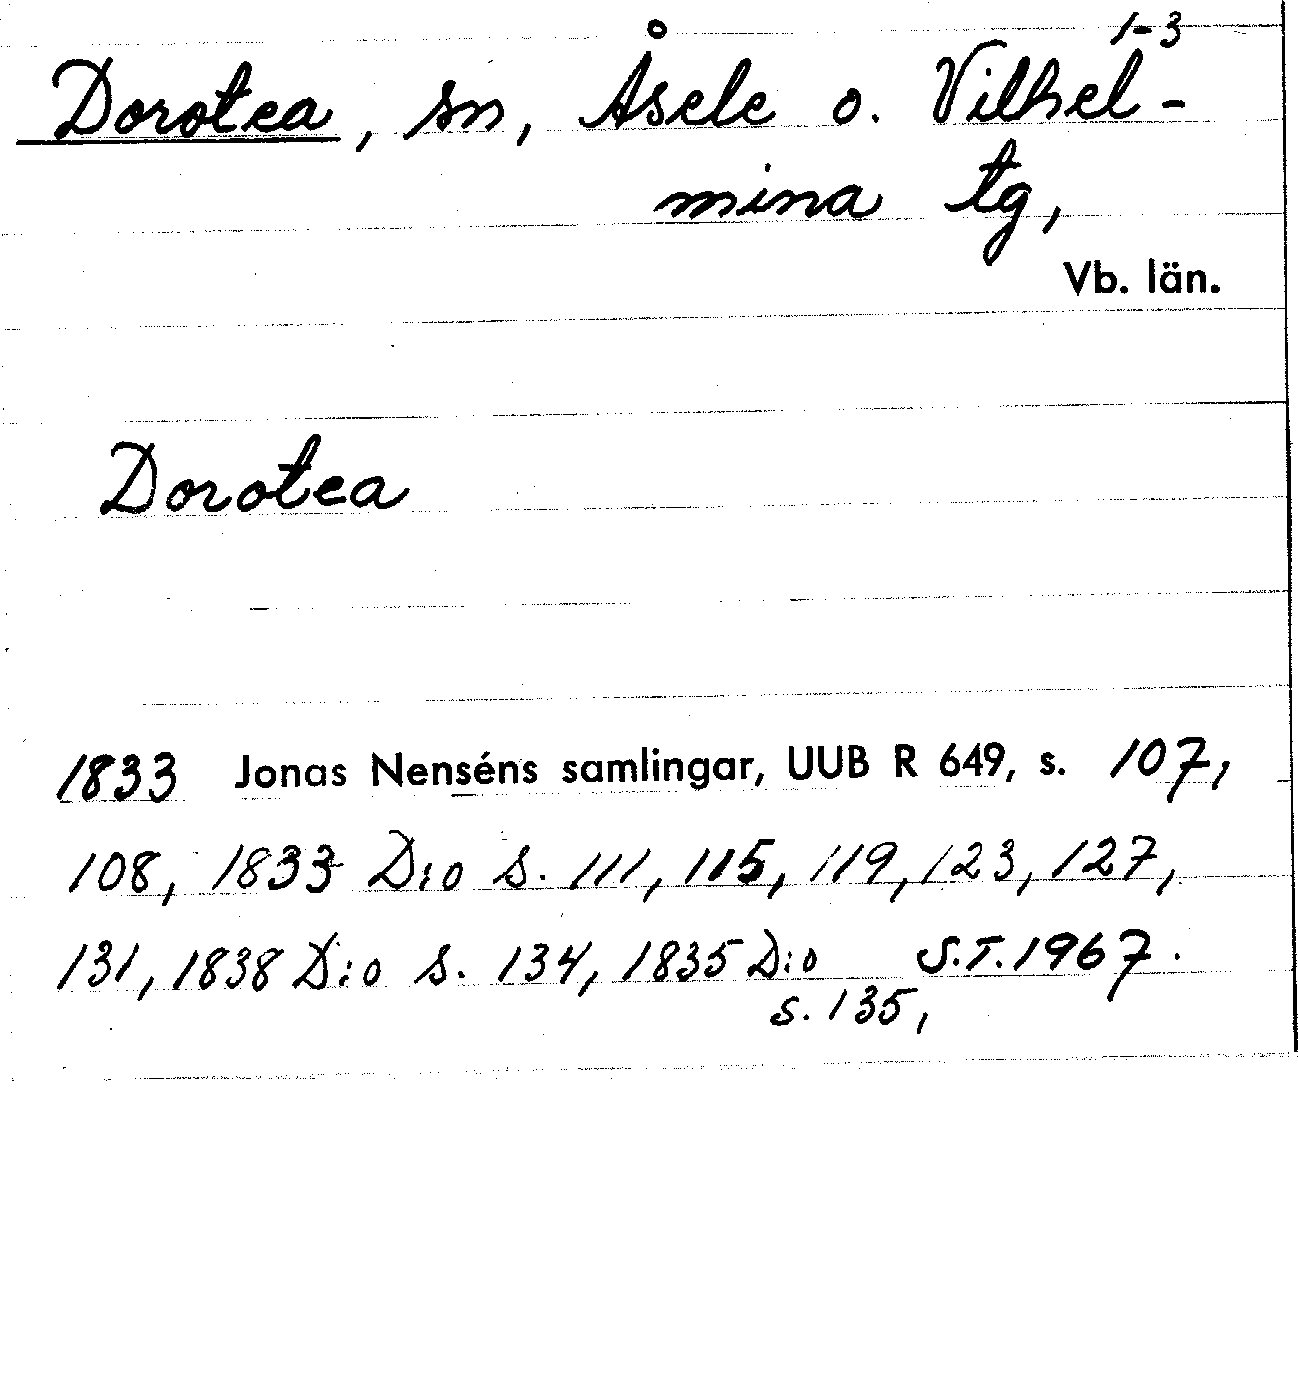 1-3
Dorotea, sn, Åsele o. Vilhel-
mina tg,
Vb. län.
Dorotea
1833 Jonas Nenséns samlingar, UUB R 649, s. 107,
108, 1833 D:o s. 111, 115, 119, 123, 127,
131, 1838 D:o s. 134, 1835 D:o S.T. 1967.
s. 135,